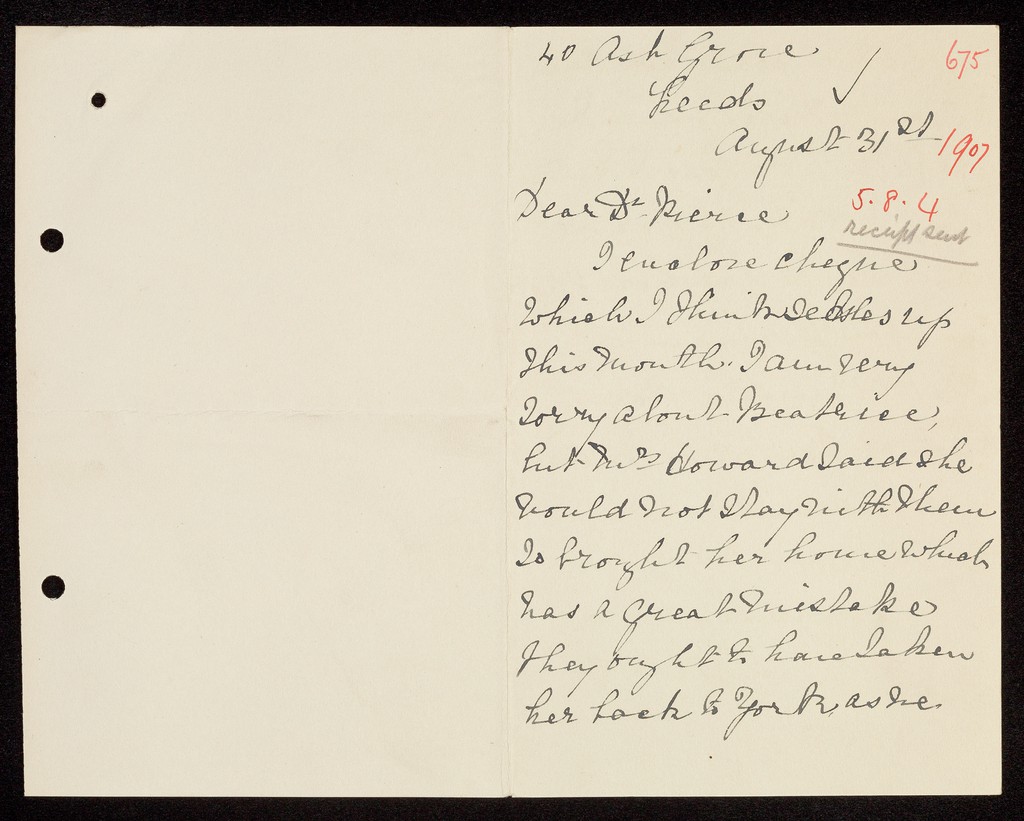 675
40 Ash Grove
Leeds
August 31st 1907
Dear Dr. Pierce
5.8.4
receipt sent
I enclose cheque
which I think settles up
this month. I am very
sorry about Beatrice,
but Mrs Howard said she
would not stay with them
so brought her home which
was a great mistake
they ought to have taken
her back to York, as we